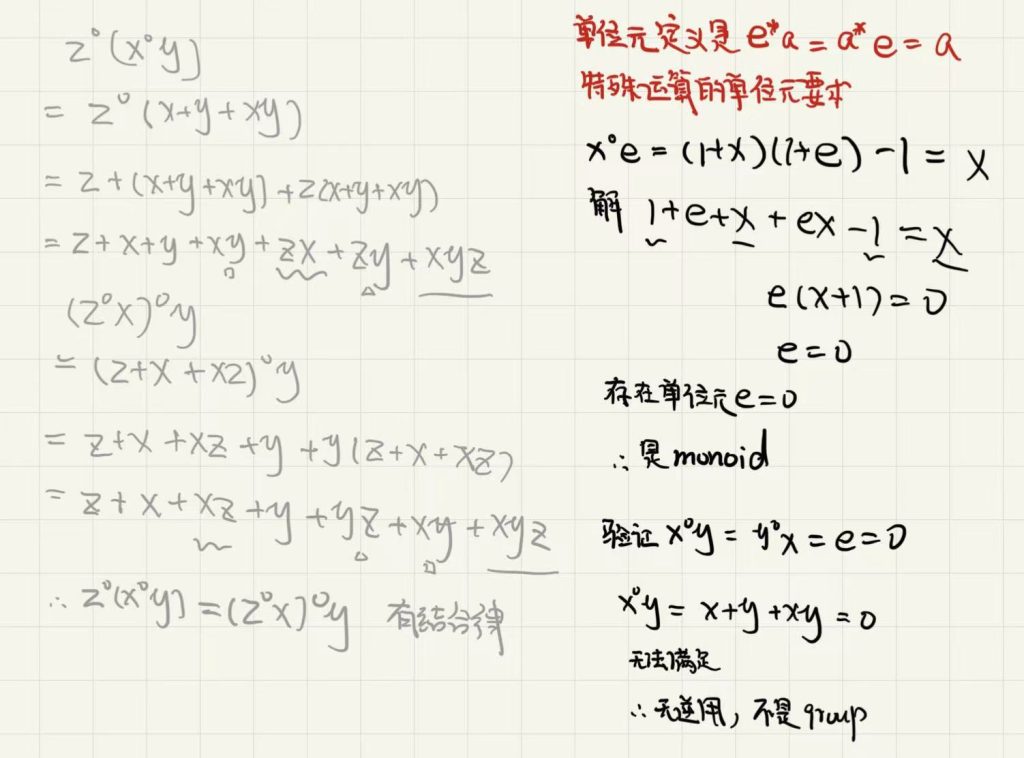 z°(x°y)
= z°(x+y+xy)
= z+(x+y+xy)+z(x+y+xy)
= z+x+y+xy+zx+zy+xyz
(z°x)°y
= (z+x+xz)°y
= z+x+xz+y+y(z+x+xz)
= z+x+xz+y+yz+xy+xyz
∴ z°(x°y)=(z°x)°y 有结合律
单位元定义是 e*a=a*e=a
特殊运算的单位元要求
x°e=(1+x)(1+e)-1=x
解 1+e+x+ex-1=x
e(x+1)=0
e=0
存在单位元e=0
∴是monoid
验证 x°y=y°x=e=0
x°y=x+y+xy=0
无法满足
∴无逆用,不是group